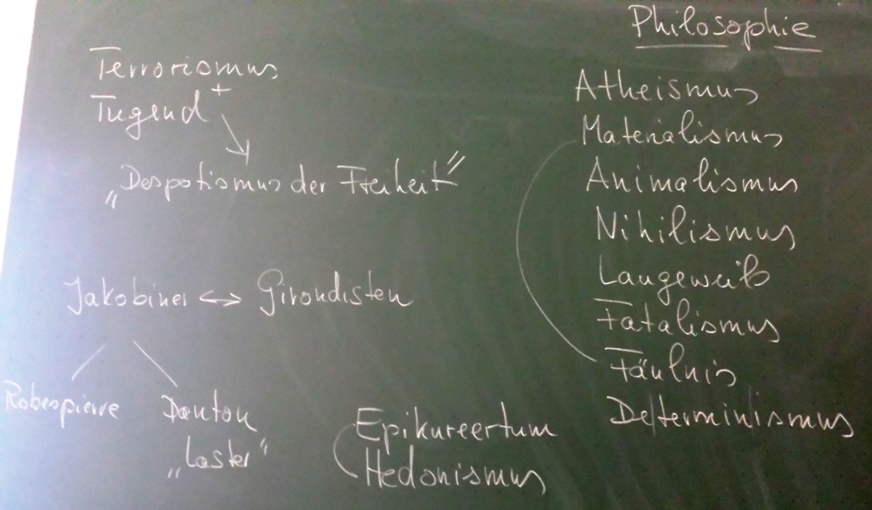 Terrorismus
+
Tugend
„Despotismus der Freiheit"
Jakobiner <-> Girondisten
Robespierre Danton
„Laster"
Epikureertum
Hedonismus
Philosophie
Atheismus
Materialismus
Animalismus
Nihilismus
Langeweile
Fatalismus
Fäulnis
Determinismus